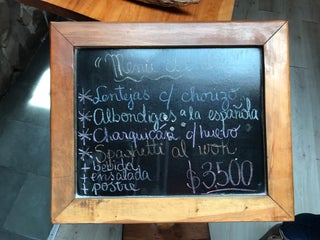 "Menú del día"
* Lentejas c/ chorizo
* Albondigas a la española
* Charquican c/ huevo
* Spaghetti al wok
+ bebida
+ ensalada
+ postre $3.500